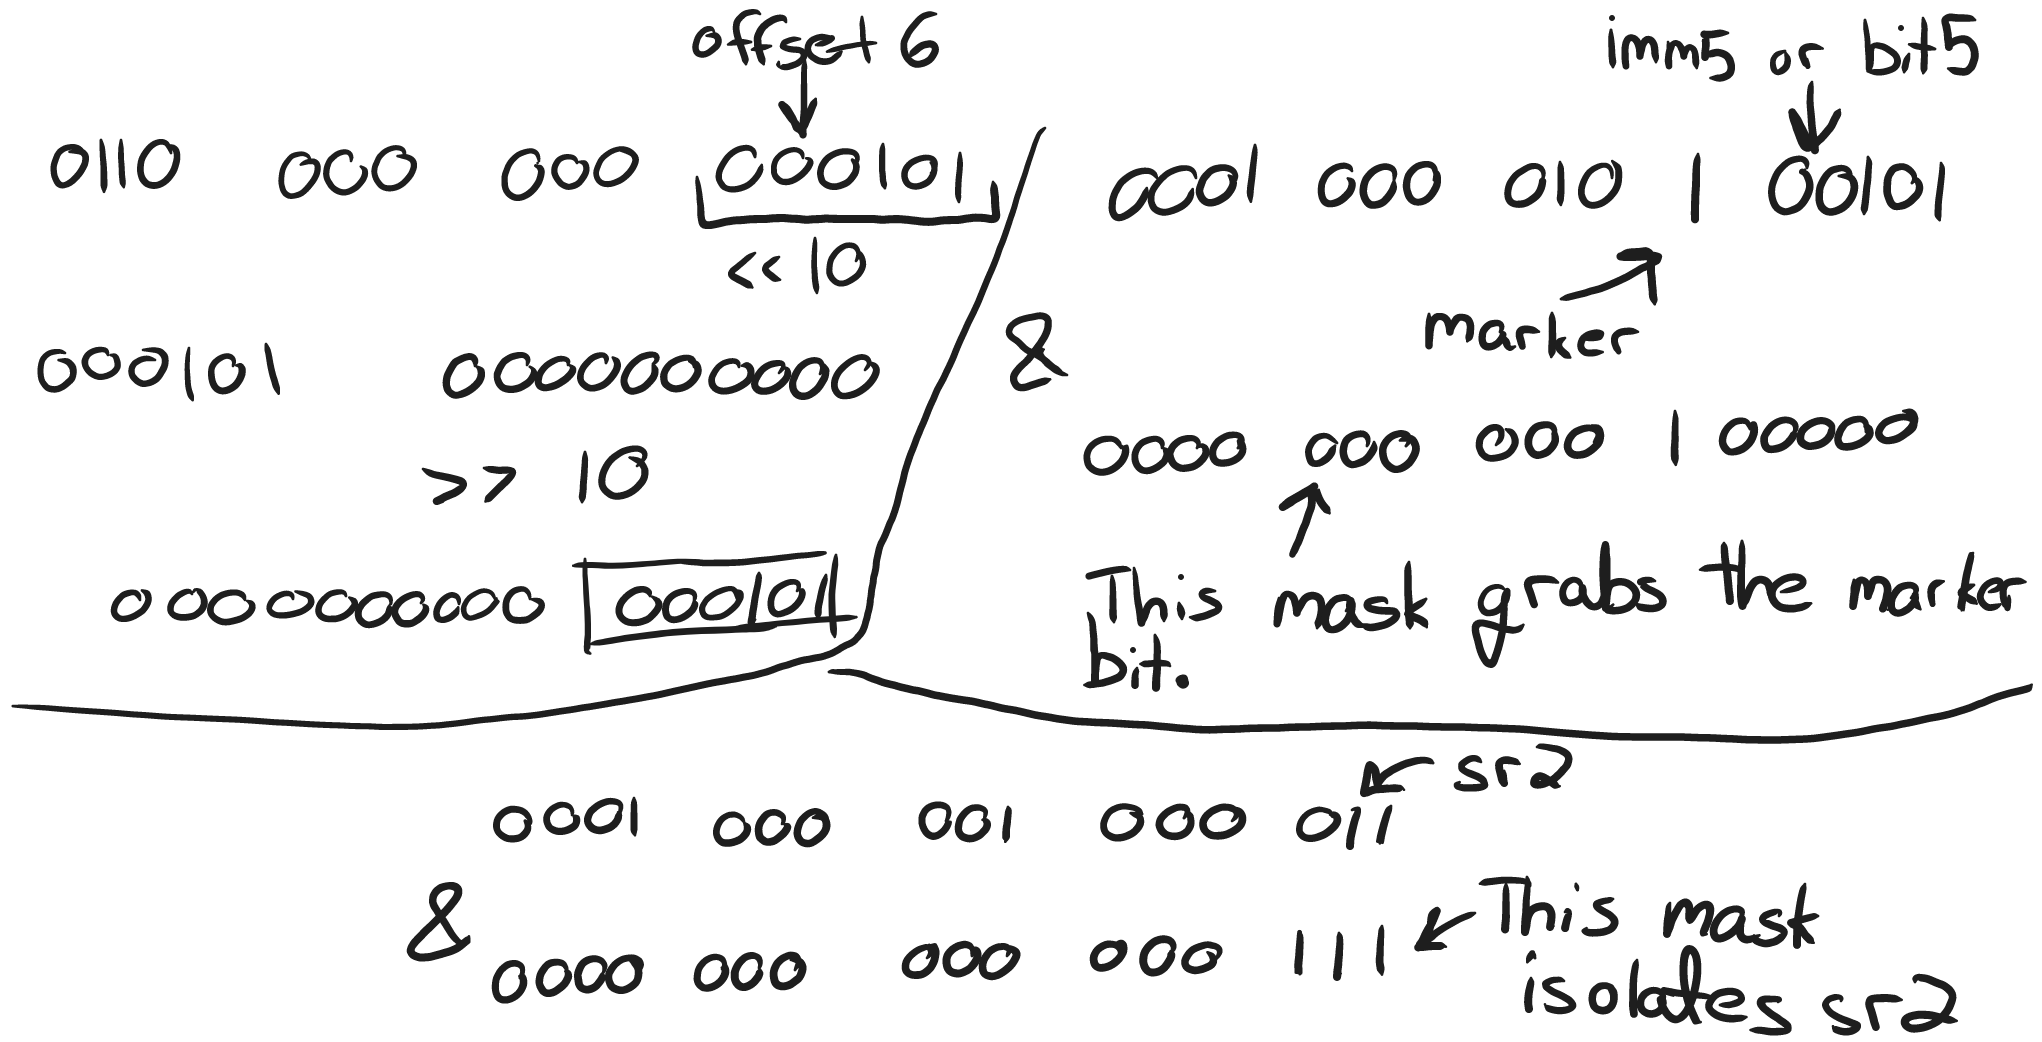 offset 6
0110 000 000 000101
<< 10
000101 0000000000
>> 10
0000000000 000101
imm5 or bit5
0001 000 010 1 00101
marker
&
0000 000 000 1 00000
This mask grabs the marker
bit.
sr2
0001 000 001 000 011
&
0000 000 000 000 111
This mask
isolates sr2